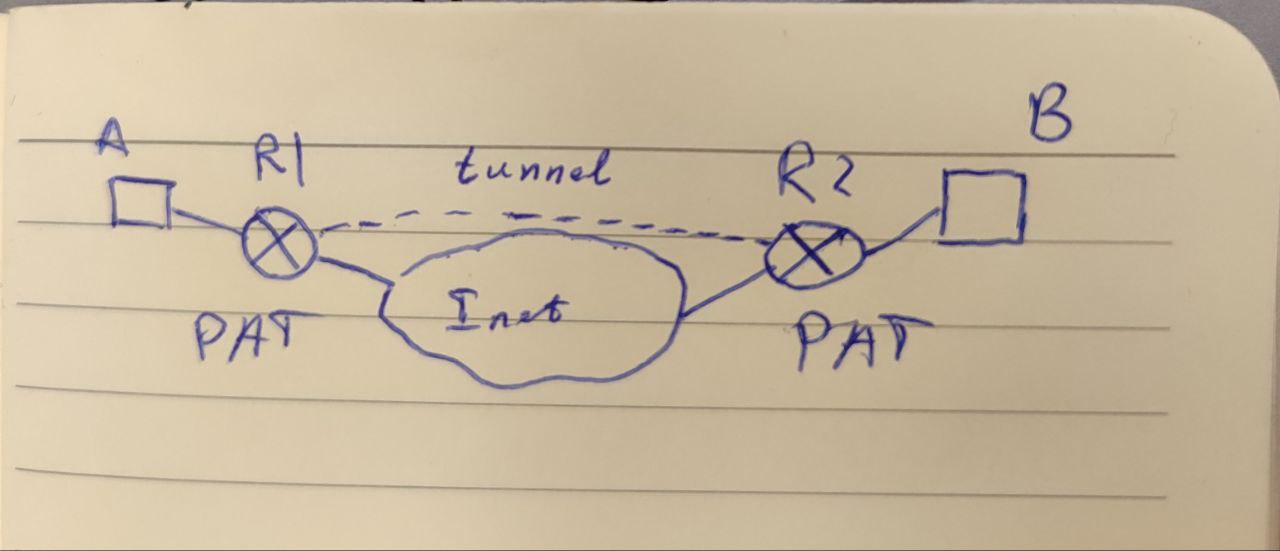 A
R1
tunnel
R2
B
PAT
Inet
PAT